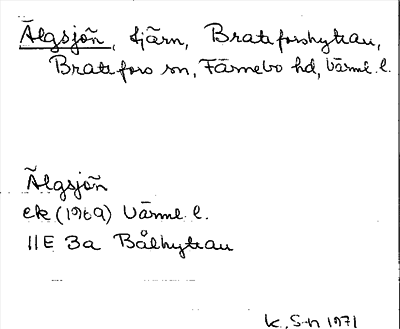 Älgsjön, tjärn, Bratsforshyttan,
Bratsfors sn, Färnebo hd, Värml. l.
Älgsjön
ek (1969) Värml. l.
11E 3a Bålhyttan
K. S-n 1971